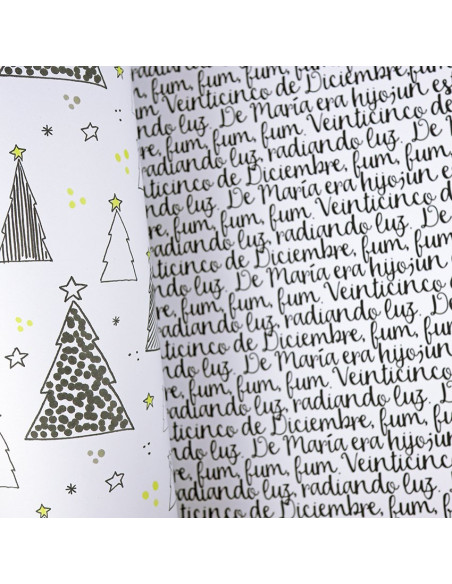 ticinco de Diciembre, fum
radiando luz, radiando luz.
re, fum, fum, fum. Veinticinco
De María era hijo;un es
ticinco de Diciembre, fum
radiando luz, radiando luz. De
re, fum, fum, fum. Veinticinco
De María era hijo;un
ticinco de Diciembre, fum, fum
radiando luz, radiando luz. De
re, fum, fum, fum. Veinticinco de
De María era hijo;un
ticinco de Diciembre, fum, fum,
radiando luz, radiando luz. De
re, fum, fum, fum. Veinticinco
De María era hijo;un
ticinco de Diciembre, fum, fum
radiando luz, radiando luz. De
re, fum, fum, fum. Veinticinco
radiando luz, radiando luz.
ticinco de Diciembre, fum,